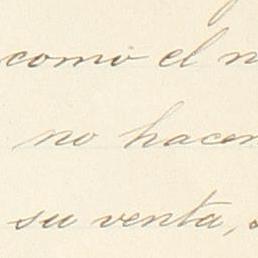 como el
no hacen
su venta,